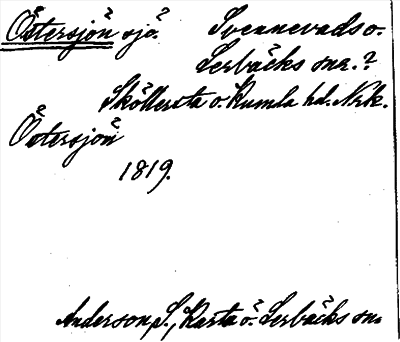 Östersjön sjö? Svennevads o.
Lerbäcks snr.?
Sköllersta o. Kumla hd. Nrk.
Östersjön
1819.
Anderson, S., Karta ö. Lerbäcks sn.